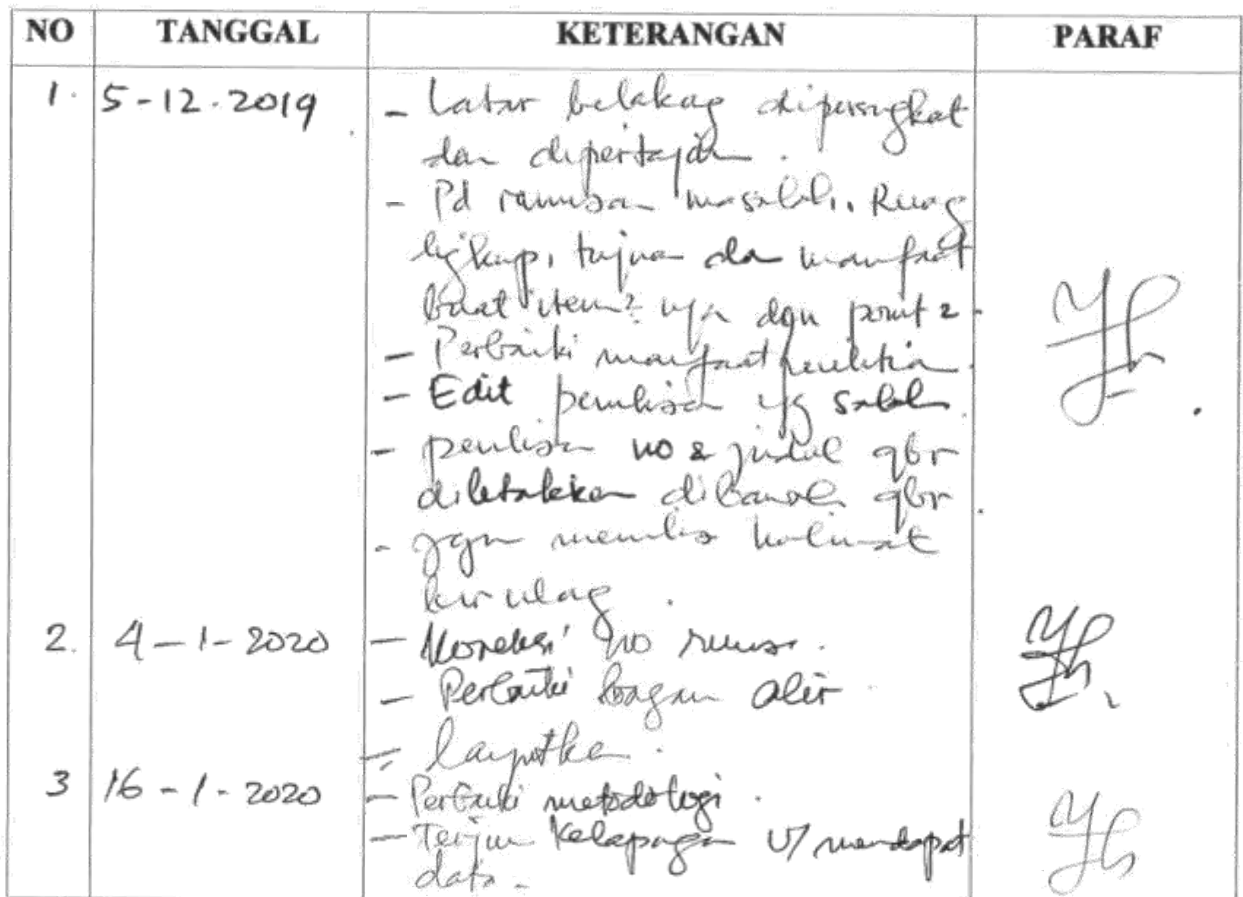 NO TANGGAL KETERANGAN PARAF
1. 5-12-2019 - Latar belakag dipersingkat
dan dipertajam.
- Pd rumusan masalah, Ruag
ligkup, tujuan dan manfaat
buat item2 nya dgn point 2.
- Perbaiki manfaat penelitian.
- Edit penulisan yg salah.
- penulisan no & judul gbr
diletakkan dibawah gbr.
- jgn menulis kalimat
berulag.
2. 4-1-2020 - Koreksi no rumus.
- Perbaiki bagan alir
- lanjutkan.
3 16-1-2020 - Perbaiki metodologi.
- Terjun kelapagan U/ mendapat
data.